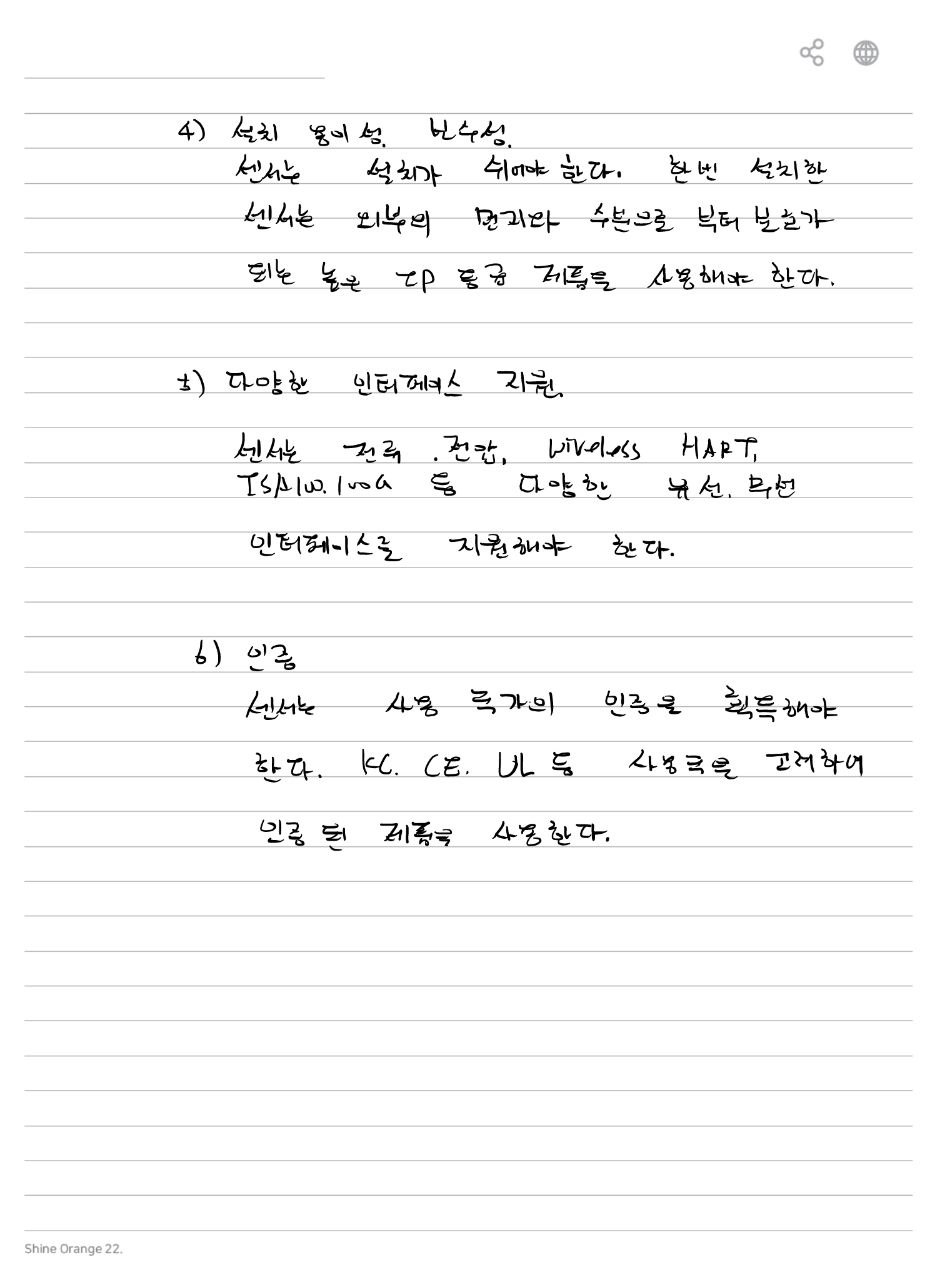 4) 설치 용이성. 방수성.
센서는 설치가 쉬어야 한다. 한번 설치한
센서는 외부의 먼지와 수분으로 부터
되는 높은 IP 등급 제품을 사용해야 한다.
5) 다양한 인터페이스 지원.
센서는 전류. 전압, wireless HART,
ISA100. 등 다양한 유선. 무선
인터페이스를 지원해야 한다.
6) 인증
센서는 사용 국가의 인증을 획득해야
한다. KC. CE. UL 등 사용국을 고려하여
인증 된 제품을 사용한다.
Shine Orange 22.